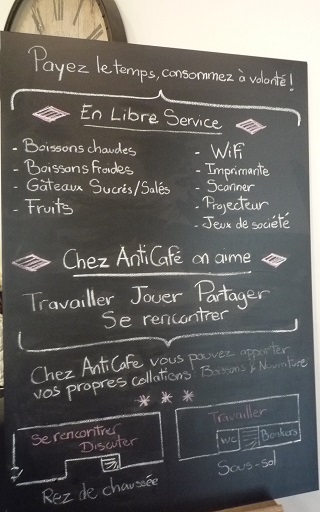 Payez le temps, consommez à volonté !
En Libre Service
- Boissons chaudes
- Boissons froides
- Gâteaux Sucrés/Salés
- Fruits
- Wifi
- Imprimante
- Scanner
- Projecteur
- Jeux de société
Chez AntiCafé on aime
Travailler Jouer Partager
Se rencontrer
Chez AntiCafé vous pouvez apporter
vos propres collations Boissons & Nourriture
* * *
Se rencontrer
Discuter
Rez de chaussée
Travailler
WC
Sous-sol